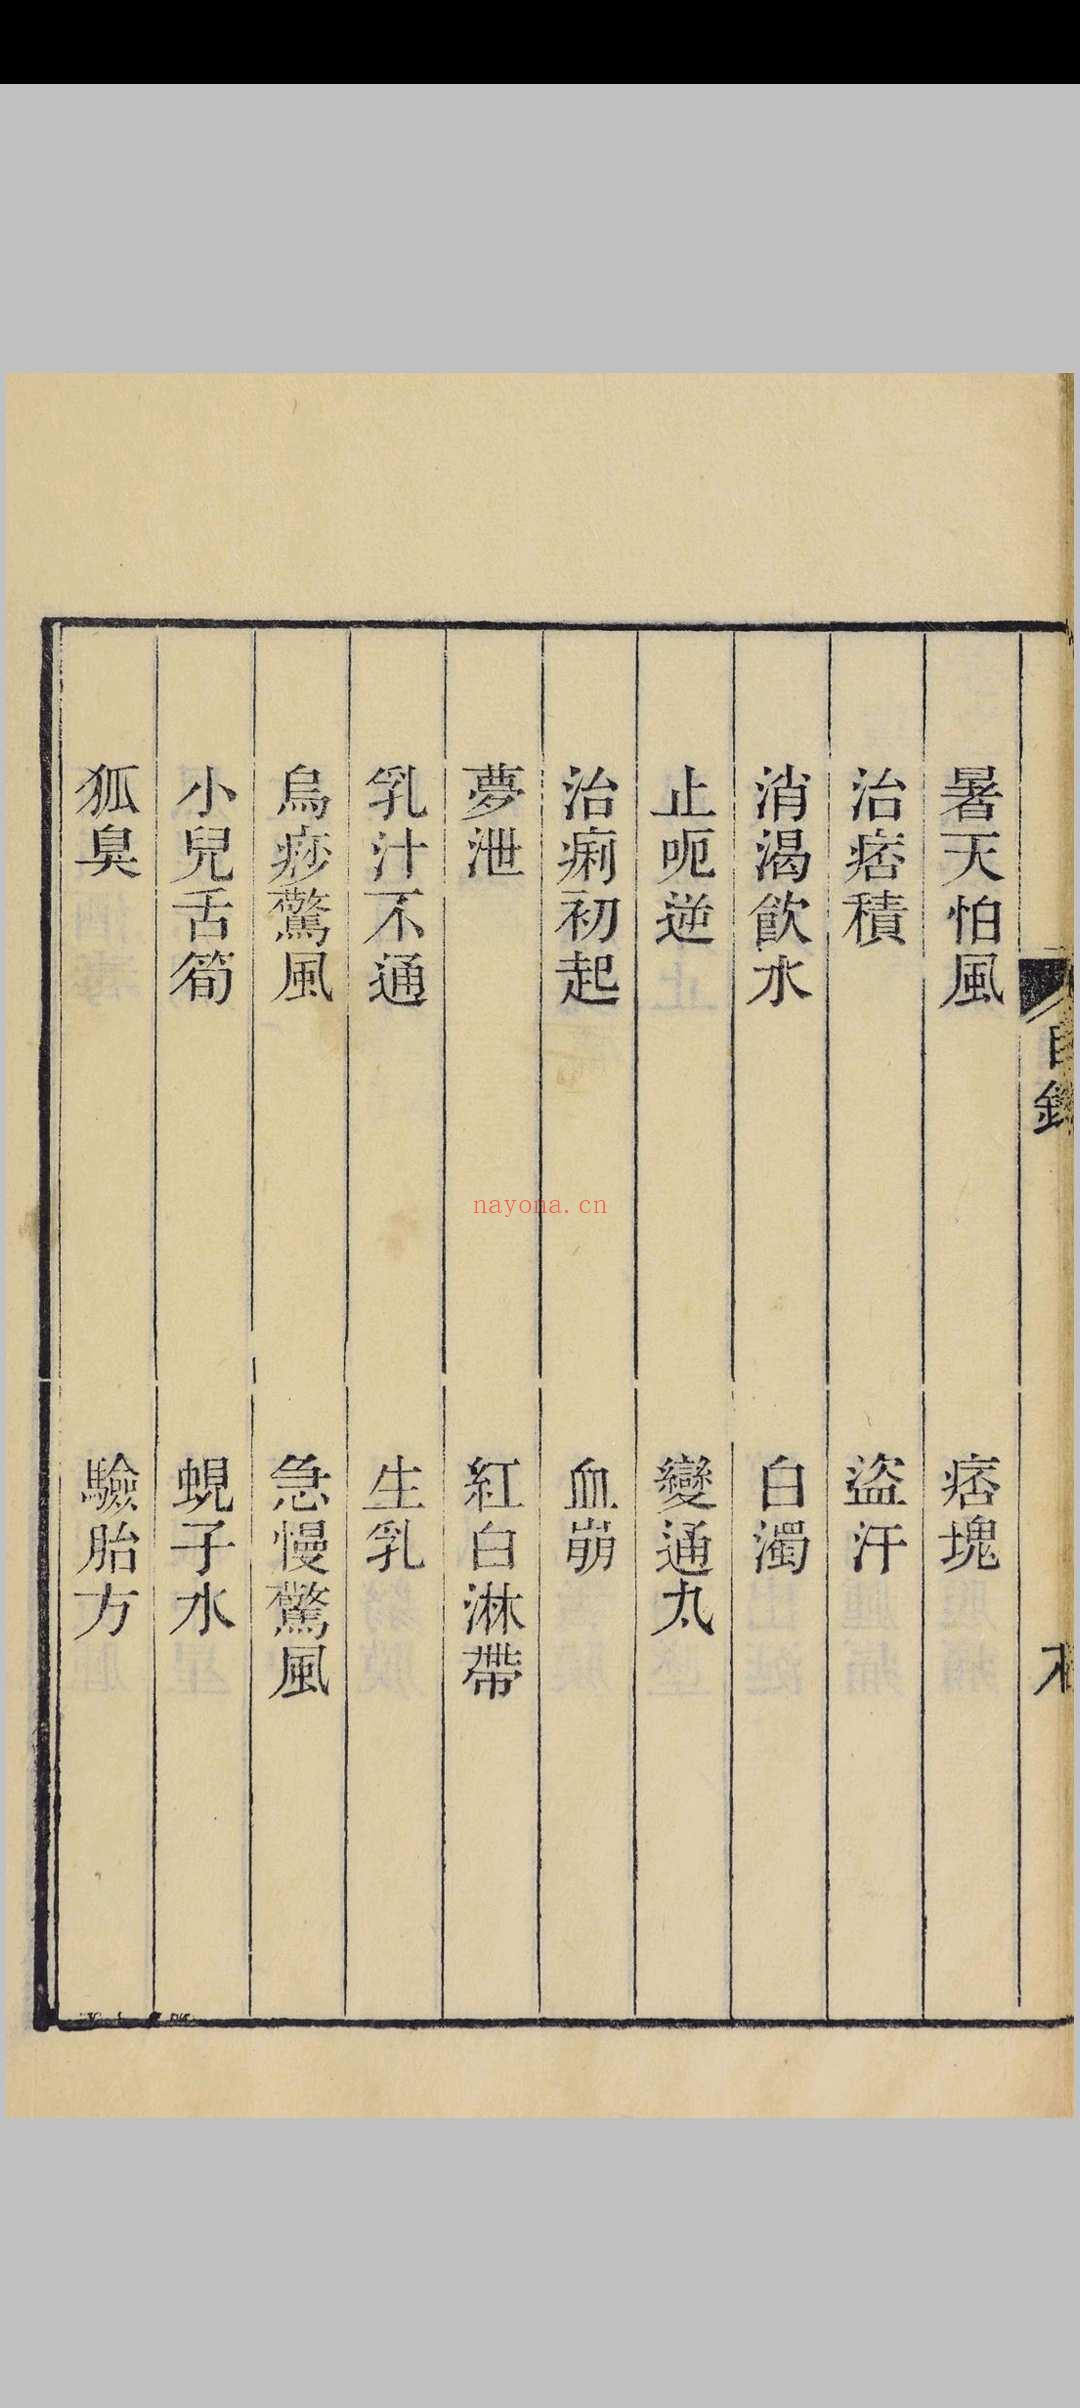 目錄
暑天怕風
痞塊
治痞積
盜汗
消渴飲水
白濁
止呃逆
變通丸
治痢初起
血崩
夢泄
紅白淋帶
乳汁不通
生乳
烏痧驚風
急慢驚風
小兒舌筍
蜆子水
狐臭
驗胎方
nayona.cn